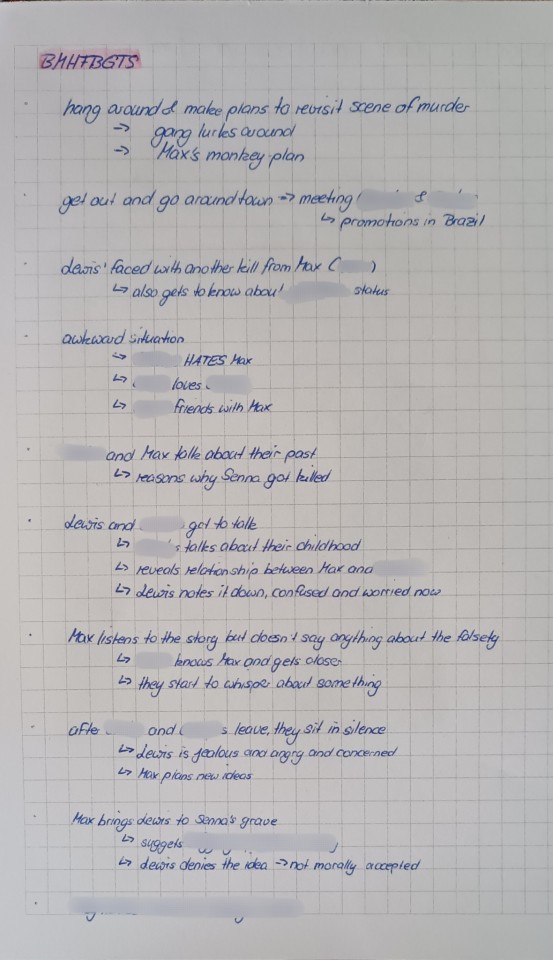 BMHTBGTS
hang around & make plans to revisit scene of murder
→ gang lurks around
→ Max's monkey plan
get out and go around town → meeting &
↳ promotions in Brazil
Lewis' faced with another kill from Max ( )
↳ also gets to know about status
awkward situation
↳ HATES Max
↳ loves
↳ friends with Max
and Max talk about their past
↳ reasons why Senna got killed
Lewis and got to talk
↳ 's talks about their childhood
↳ reveals relationship between Max and
↳ Lewis notes it down, confused and worried now
Max listens to the story but doesn't say anything about the falsety
↳ knows Max and gets closer
↳ they start to whisper about something
and leave, they sit in silence
↳ Lewis is jealous and angry and concerned
↳ Max plans new ideas
Max brings Lewis to Senna's grave
↳ suggets
↳ Lewis denies the idea → not morally accepted